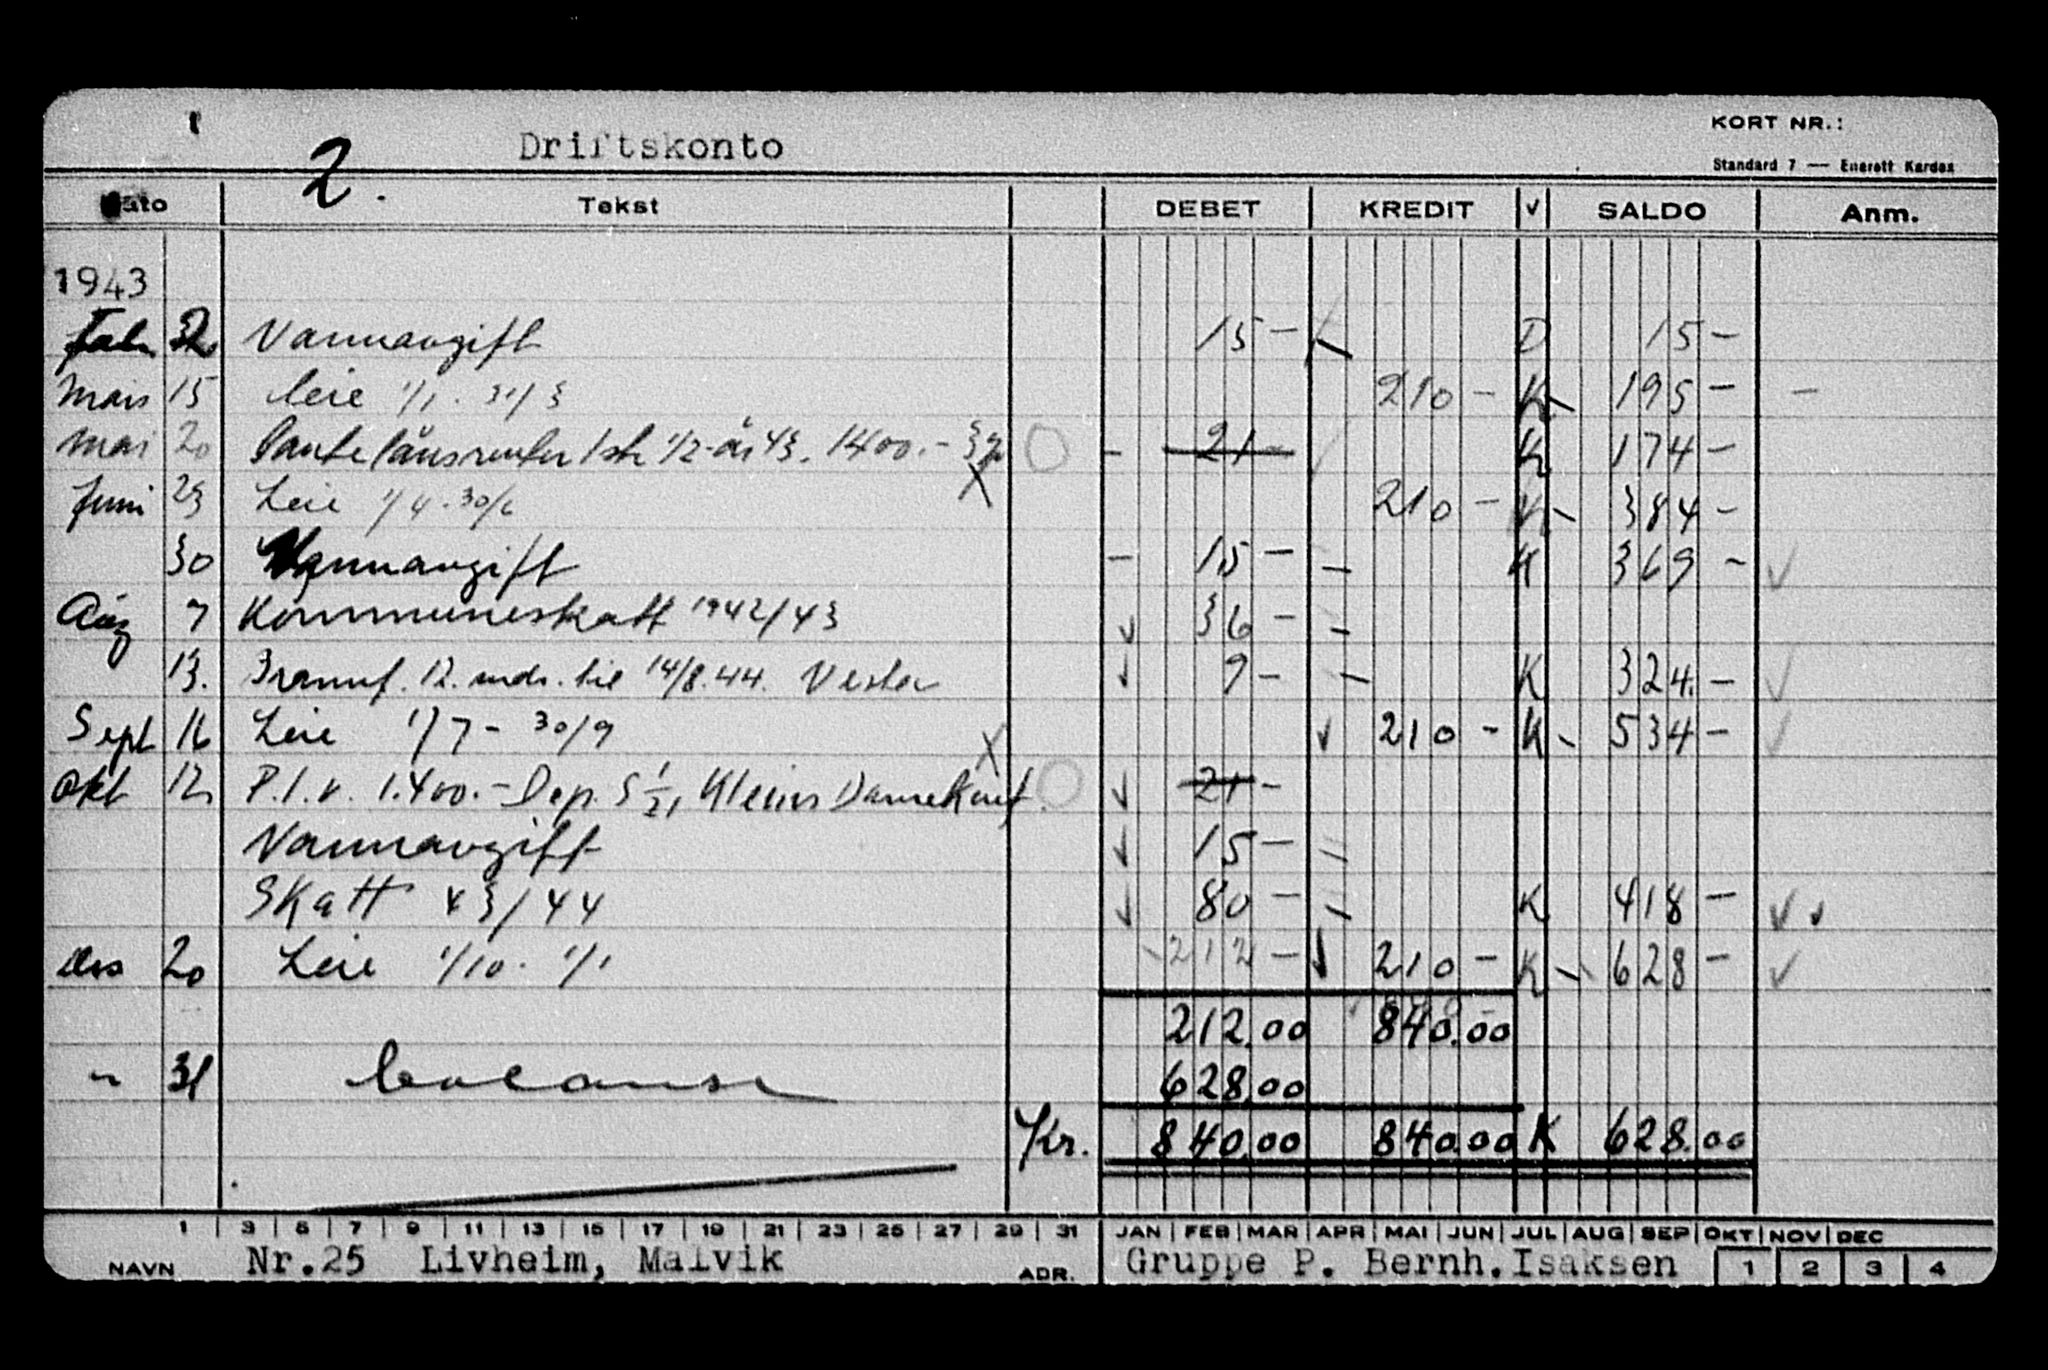 Driftskonto
KORT NR.:
2.
Standard 7 — Enerett Kardex
Dato Tekst DEBET KREDIT √ SALDO Anm.
1943
Feb. Vannavgift 15 – D 15 –
Mars 15 Leie 1/1 - 31/3 210 – K 195 –
Mai 20 Pantelånsrenter 1ste 1/2-år 43. 1400.- 3% 21 – K 174 –
Juni 23 Leie 1/4 - 30/6 210 – K 384 –
30 Vannavgift 15 – K 369 –
Aug 7 Kommuneskatt 1942/43 36 –
13. Brannf. 12 mdr. til 14/8.44. Vesta 9 – K 324. –
Sept 16 Leie 1/7 – 30/9 210 – K 534 –
Okt 12 P.l.r. 1.400.– Dep. 21 –
Vannavgift 15 –
Skatt 43/44 80 – K 418 –
Des 20 Leie 1/10 - 1/1 212 – 210 – K 628 –
212.00 840.00
" 31 balanse 628.00
Kr. 840.00 840.00 K 628.00
1 3 5 7 9 11 13 15 17 19 21 23 25 27 29 31 JAN FEB MAR APR MAI JUN JUL AUG SEP OKT NOV DEC
NAVN Nr.25 Livheim, Malvik ADR. Gruppe P. Bernh. Isaksen 1 2 3 4